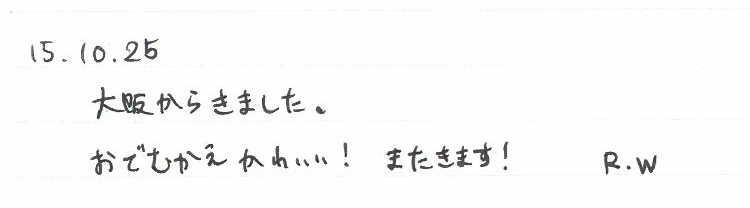 15.10.25
大阪からきました。
おでむかえかわいい! またきます! R.W